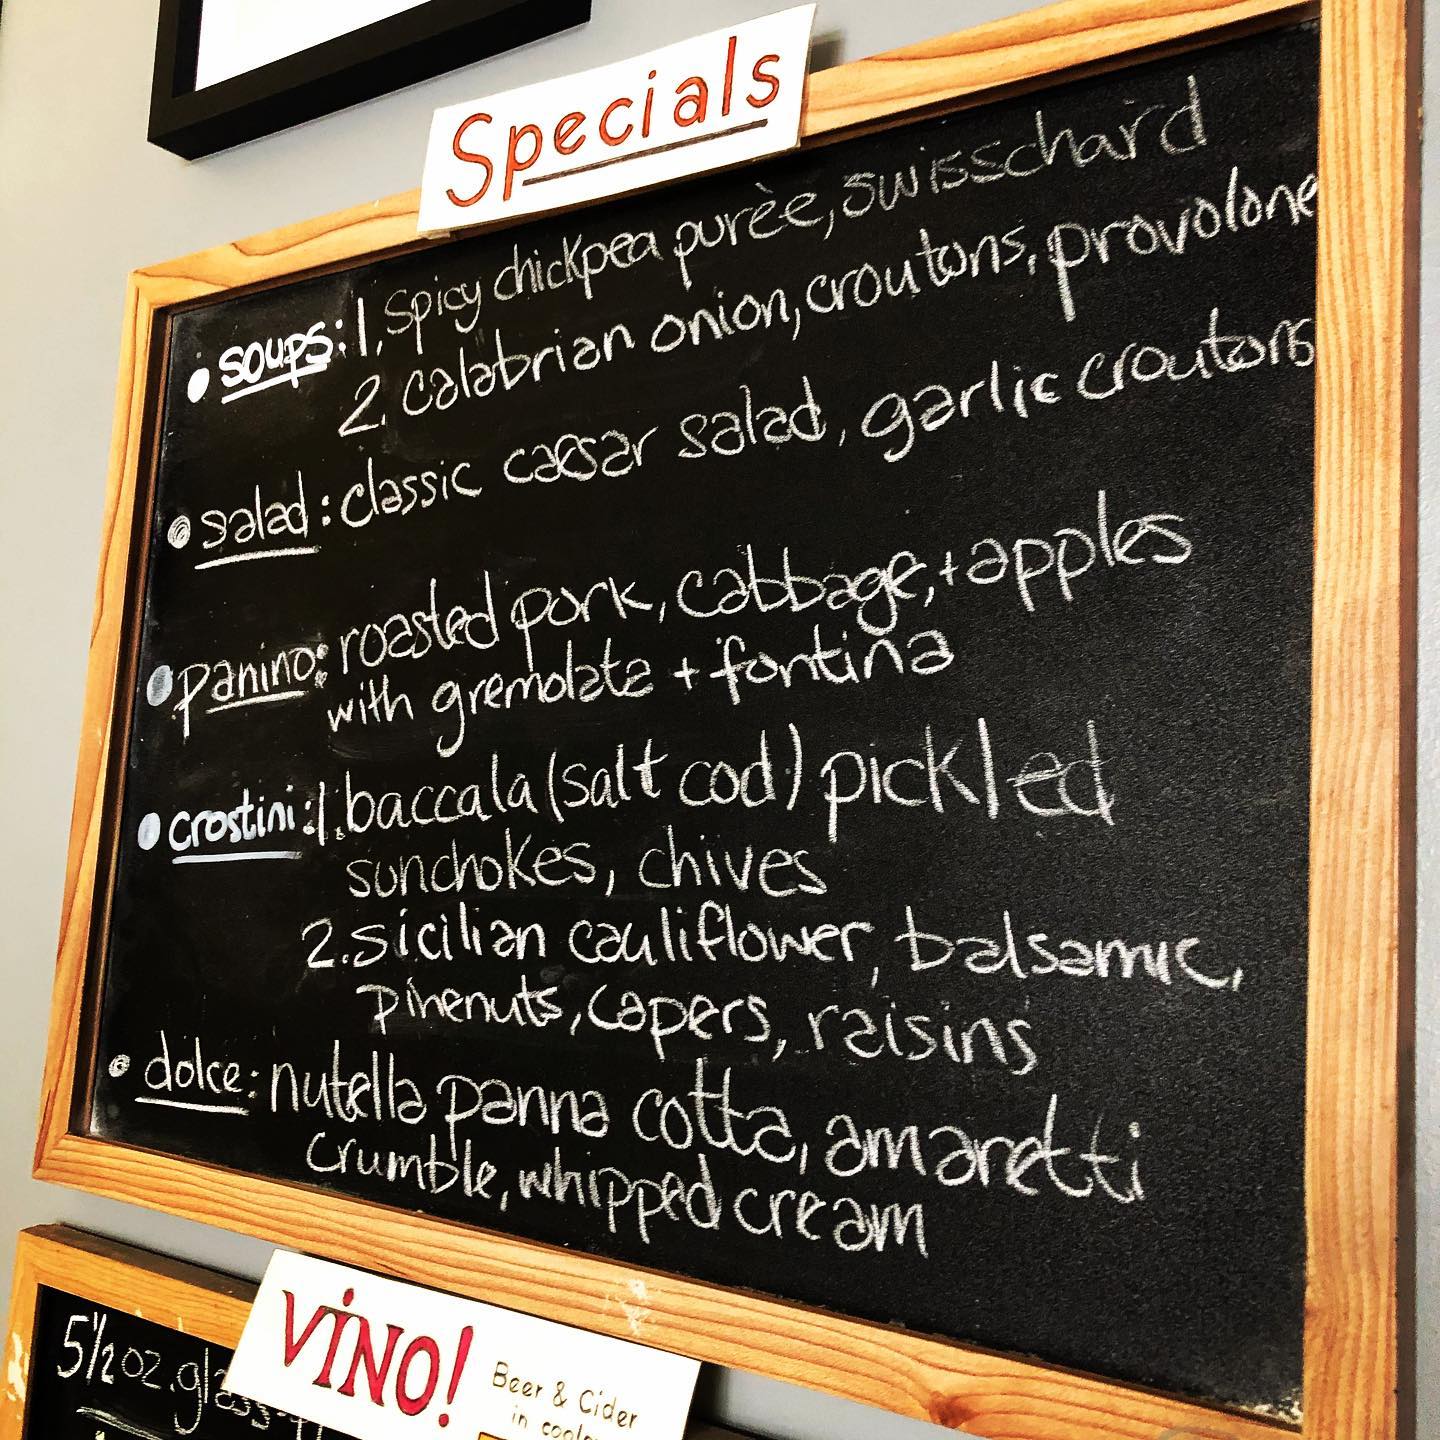 Specials
• soups: 1. spicy chickpea purèe, swisschard
2. calabrian onion, croutons, provolone
• salad: classic caesar salad, garlic croutons
• panino: roasted pork, cabbage, + apples
with gremolata + fontina
• crostini: 1. baccala (salt cod) pickled
sunchokes, chives
2. sicilian cauliflower, balsamic,
pinenuts, capers, raisins
• dolce: nutella panna cotta, amaretti
crumble, whipped cream
VINO!
Beer & Cider
in
5 1/2 oz. glass